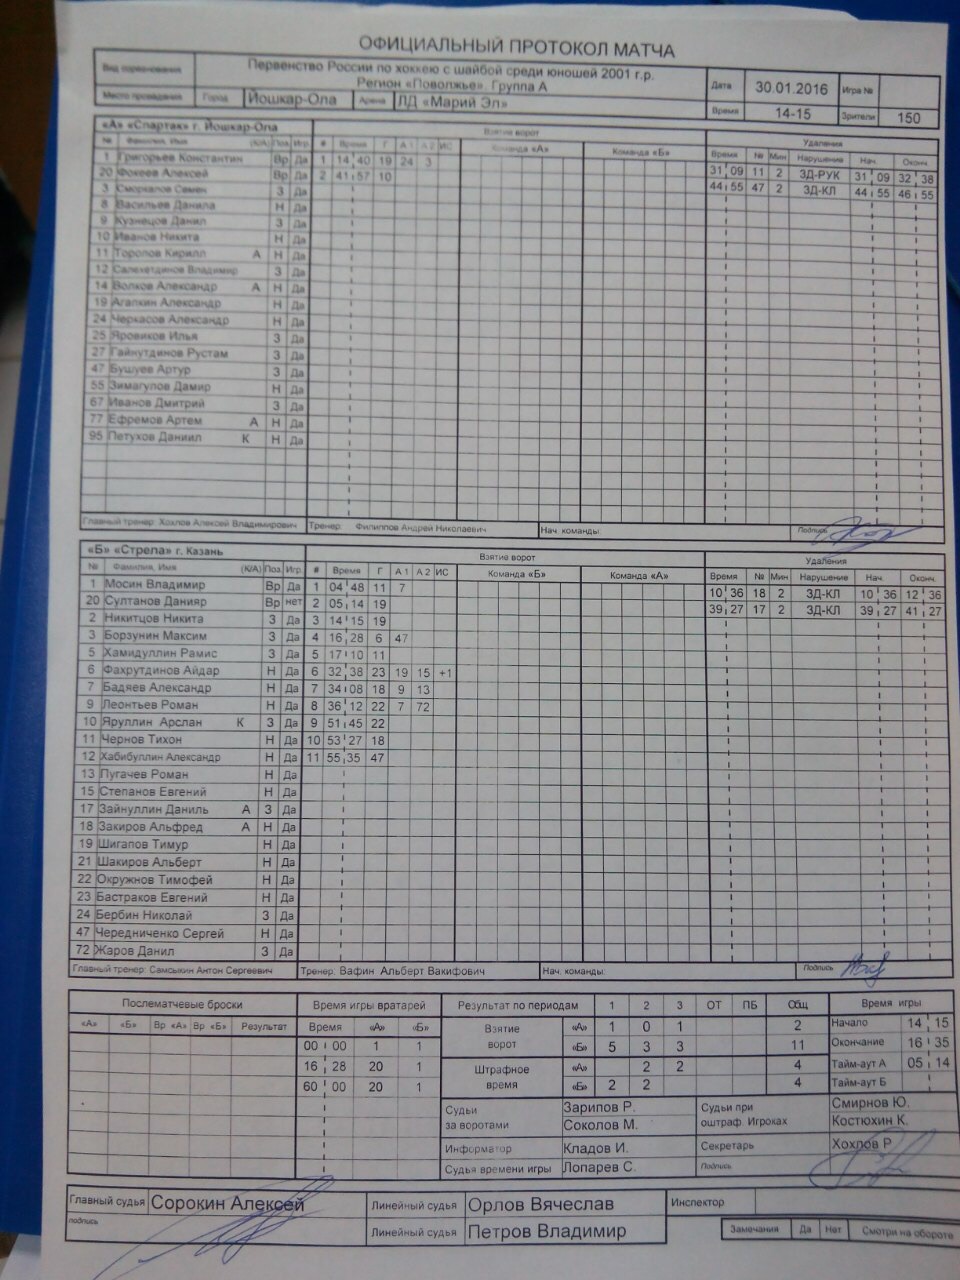 ОФИЦИАЛЬНЫЙ ПРОТОКОЛ МАТЧА
Вид соревнования Первенство России по хоккею с шайбой среди юношей 2001 г.р.
Регион «Поволжье». Группа А
Дата 30.01.2016 Игра №
Место проведения Город Йошкар-Ола Арена ЛД «Марий Эл» Время 14-15 Зрители 150
«А» «Спартак» г. Йошкар-Ола Взятие ворот Удаления
№ Фамилия, Имя (К/А) Поз Игр # Время Г А 1 А 2 ИС Команда «А» Команда «Б» Время № Мин Нарушение Нач. Оконч.
1 Григорьев Константин Вр Да 1 14 40 19 24 3 31 09 11 2 ЗД-РУК 31 09 32 38
20 Фокеев Алексей Вр Да 2 41 57 10 44 55 47 2 ЗД-КЛ 44 55 46 55
3 Сморкалов Семен З Да
8 Васильев Данила Н Да
9 Кузнецов Данил З Да
10 Иванов Никита Н Да
11 Торопов Кирилл А Н Да
12 Салехетдинов Владимир З Да
14 Волков Александр А Н Да
19 Агапкин Александр Н Да
24 Черкасов Александр Н Да
25 Яровиков Илья З Да
27 Гайнутдинов Рустам З Да
47 Бушуев Артур З Да
55 Зимагулов Дамир Н Да
67 Иванов Дмитрий З Да
77 Ефремов Артем А Н Да
95 Петухов Даниил К Н Да
Главный тренер: Хохлов Алексей Владимирович Тренер: Филиппов Андрей Николаевич Нач. команды: Подпись
«Б» «Стрела» г. Казань Взятие ворот Удаления
№ Фамилия, Имя (К/А) Поз Игр # Время Г А 1 А 2 ИС Команда «Б» Команда «А» Время № Мин Нарушение Нач. Оконч.
1 Мосин Владимир Вр Да 1 04 48 11 7 10 36 18 2 ЗД-КЛ 10 36 12 36
20 Султанов Данияр Вр нет 2 05 14 19 39 27 17 2 ЗД-КЛ 39 27 41 27
2 Никитцов Никита З Да 3 14 15 19
3 Борзунин Максим З Да 4 16 28 6 47
5 Хамидуллин Рамис З Да 5 17 10 11
6 Фахрутдинов Айдар Н Да 6 32 38 23 19 15 +1
7 Бадяев Александр Н Да 7 34 08 18 9 13
9 Леонтьев Роман Н Да 8 36 12 22 7 72
10 Яруллин Арслан К З Да 9 51 45 22
11 Чернов Тихон Н Да 10 53 27 18
12 Хабибуллин Александр Н Да 11 55 35 47
13 Пугачев Роман Н Да
15 Степанов Евгений Н Да
17 Зайнуллин Даниль А З Да
18 Закиров Альфред А Н Да
19 Шигапов Тимур Н Да
21 Шакиров Альберт Н Да
22 Окружнов Тимофей Н Да
23 Бастраков Евгений Н Да
24 Бербин Николай З Да
47 Чередниченко Сергей Н Да
72 Жаров Данил З Да
Главный тренер: Самсыкин Антон Сергеевич Тренер: Вафин Альберт Вакифович Нач. команды: Подпись
Послематчевые броски Время игры вратарей Результат по периодам 1 2 3 ОТ ПБ Общ Время игры
«А» «Б» Вр «А» Вр «Б» Результат Время «А» «Б» Взятие ворот «А» 1 0 1 2 Начало 14 15
00 00 1 1 «Б» 5 3 3 11 Окончание 16 35
16 28 20 1 Штрафное время «А» 2 2 4 Тайм-аут А 05 14
60 00 20 1 «Б» 2 2 4 Тайм-аут Б
Судьи за воротами Зарипов Р. Соколов М. Судьи при оштраф. Игроках Смирнов Ю. Костюхин К.
Информатор Кладов И. Секретарь Хохлов Р
Судья времени игры Лопарев С. Подпись
Главный судья Сорокин Алексей Линейный судья Орлов Вячеслав Инспектор
подпись Линейный судья Петров Владимир Замечания Да Нет Смотри на обороте